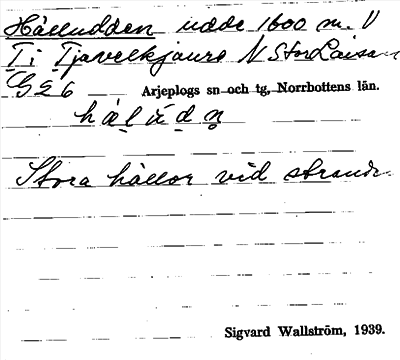 Hälludden udde 1600 m. V
T i Tjavelkjaure N Stor Laisan
G 2 6 Arjeplogs sn och tg, Norrbottens län.
hälúdn
Stora hällor vid strand
Sigvard Wallström, 1939.